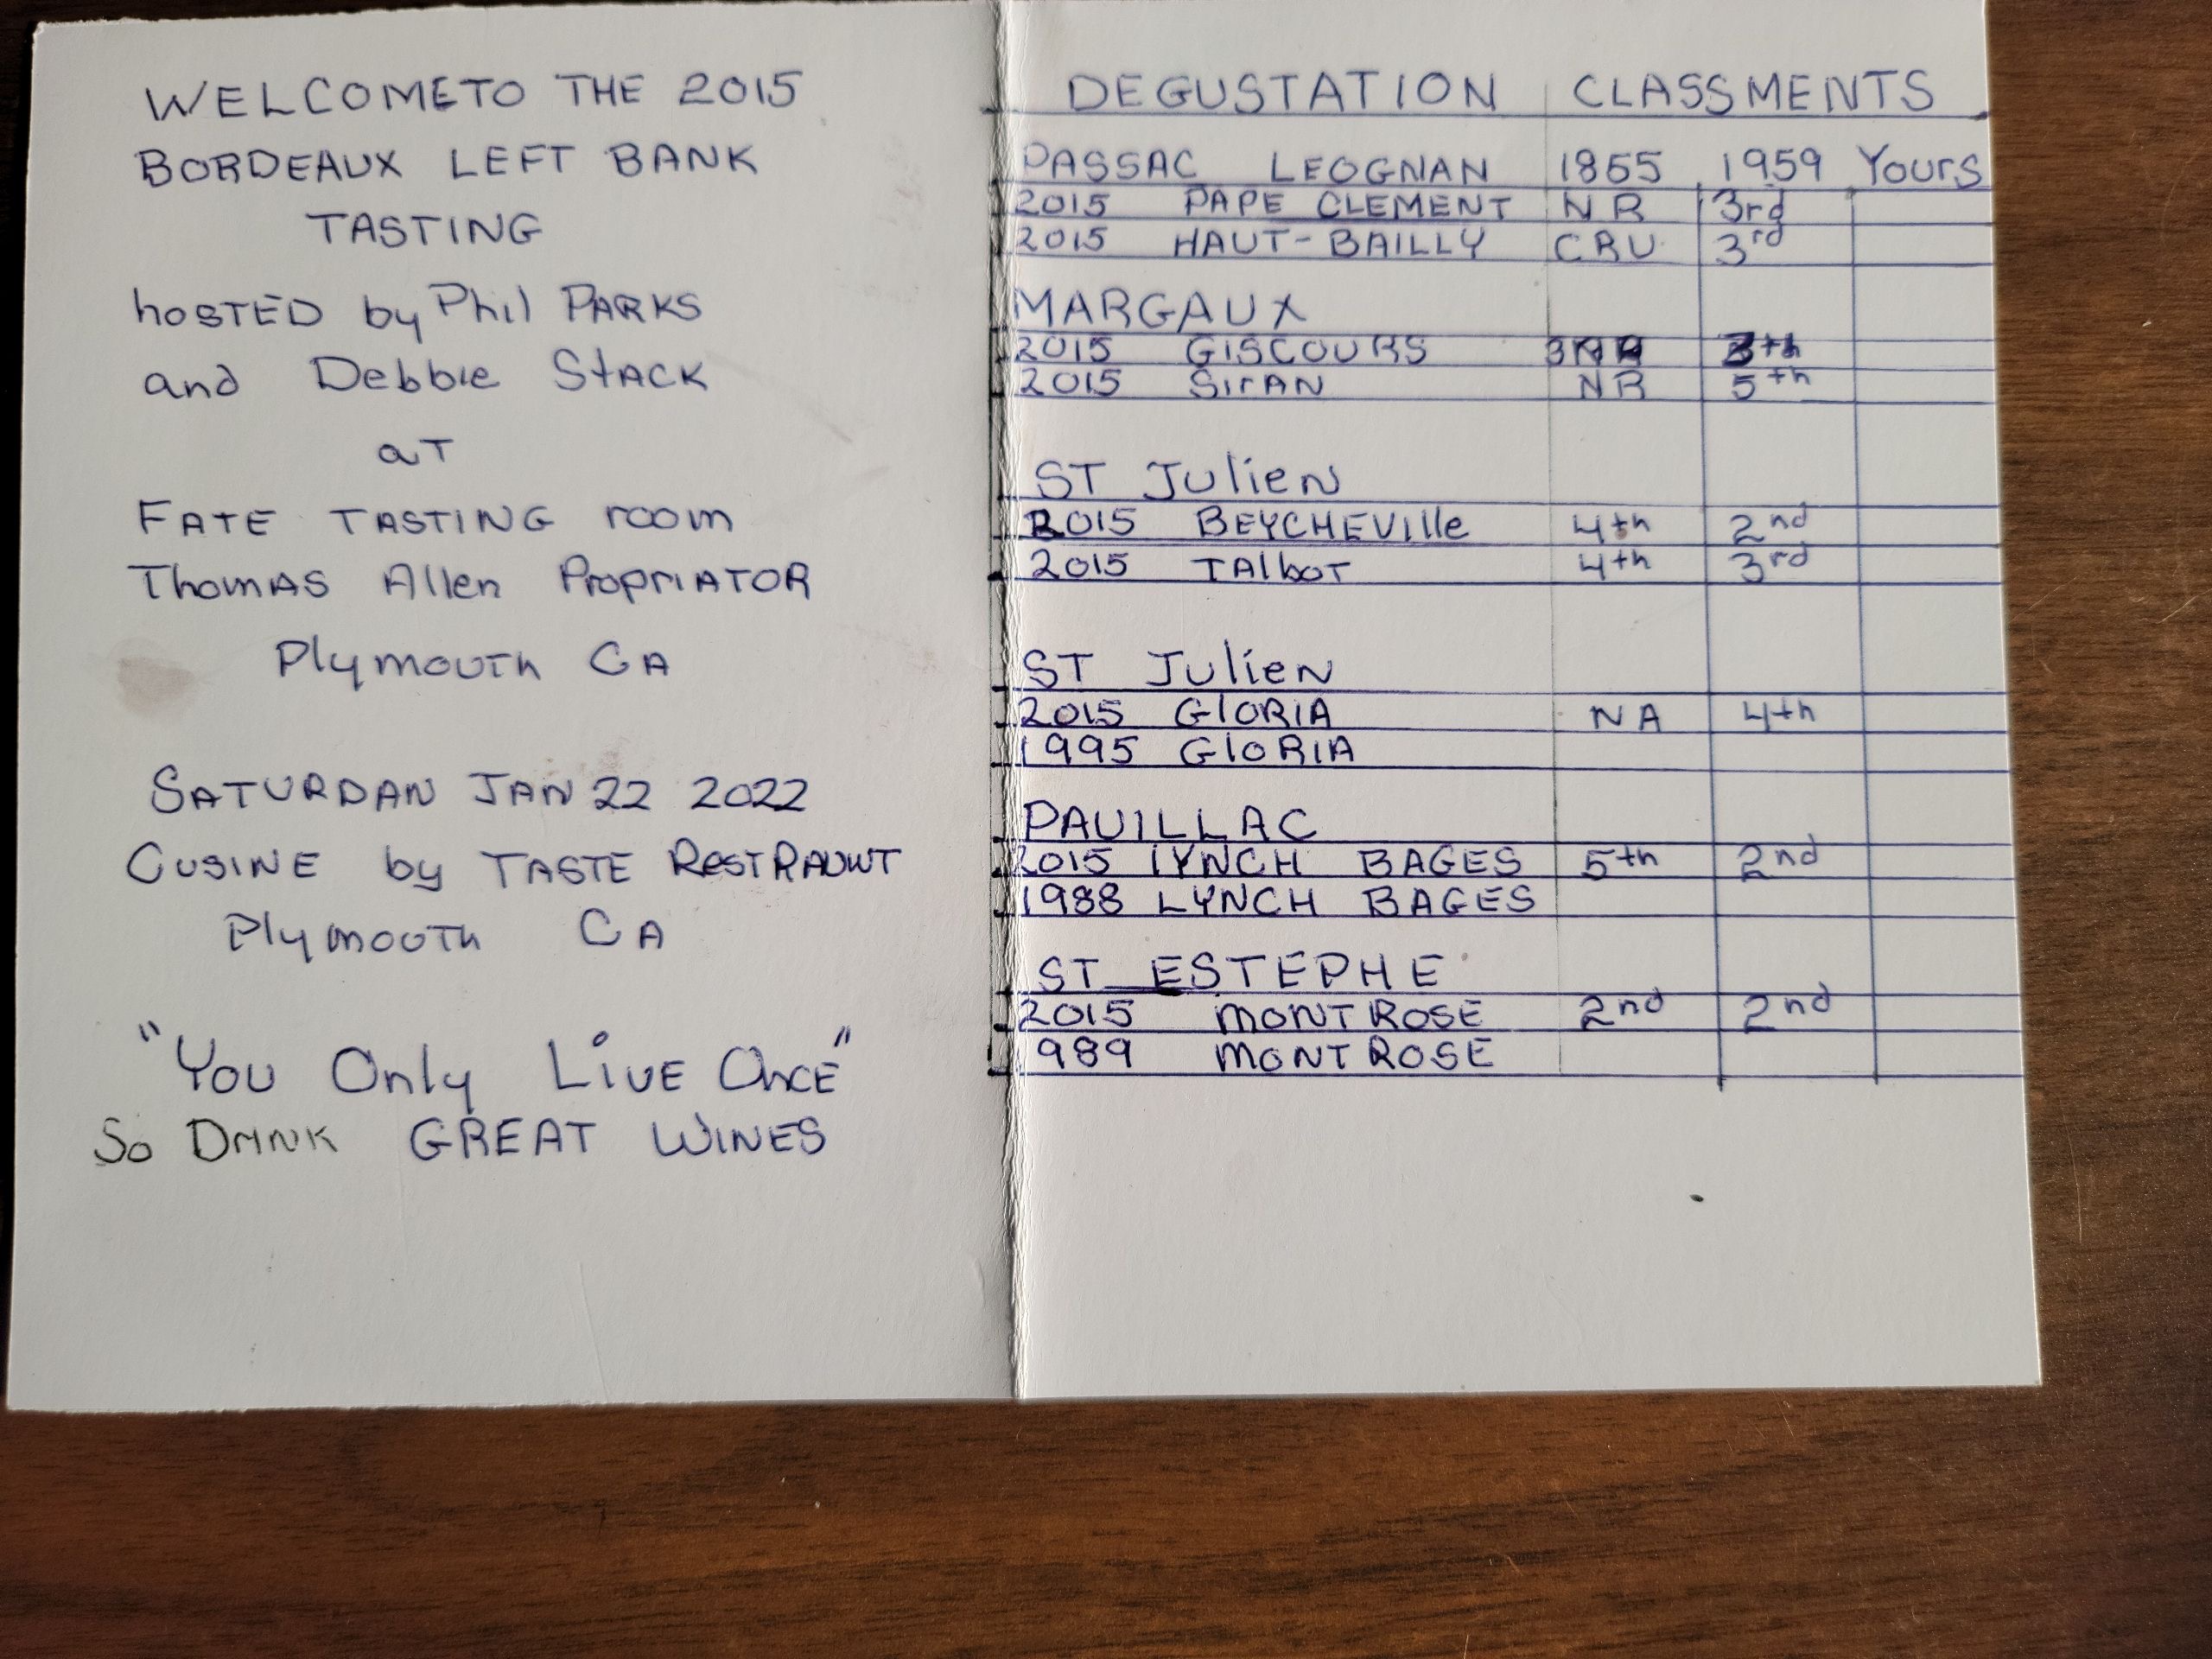 WELCOMETO THE 2015
BORDEAUX LEFT BANK
TASTING
hOSTED by Phil PARKS
and Debbie STACK
aT
FATE TASTING room
ThomAS Allen PropriATOR
Plymouth CA
SATURDAN JAN 22 2022
CUSINE by TASTE RESTRAUNT
Plymouth CA
"You Only LIVE ONCE"
So Drink GREAT WINES
DEGUSTATION CLASSMENTS
PASSAC LEOGNAN 1855 1959 Yours
2015 PAPE CLEMENT NR 3rd
2015 HAUT-BAILLY CRU 3rd
MARGAUX
2015 GISCOURS
2015 SirAN NR 5th
ST Julien
2015 BEYCHEVIlle 4th 2nd
2015 TAlbOT 4th 3rd
ST Julien
2015 GlORIA NA 4th
1995 GlORIA
PAUILLAC
2015 LYNCH BAGES 5th 2nd
1988 LYNCH BAGES
ST ESTEPHE
2015 MONTROSE 2nd 2nd
1989 MONTROSE